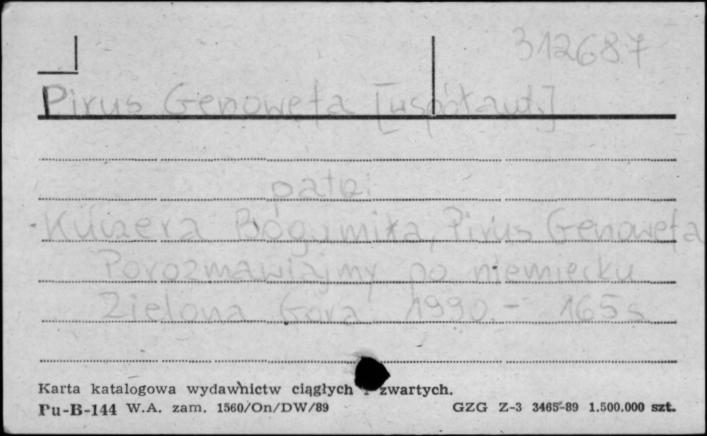 312687
Pirus Genowefa [współaut.]
patrz:
Kuczera Bogumiła, Pirus Genowefa
Porozmawiajmy po niemiecku
Zielona Góra 1990.- 165 s
Karta katalogowa wydawnictw ciągłych i zwartych.
Pu-B-144 W.A. zam. 1560/On/DW/89 GZG Z-3 3465-89 1.500.000 szt.